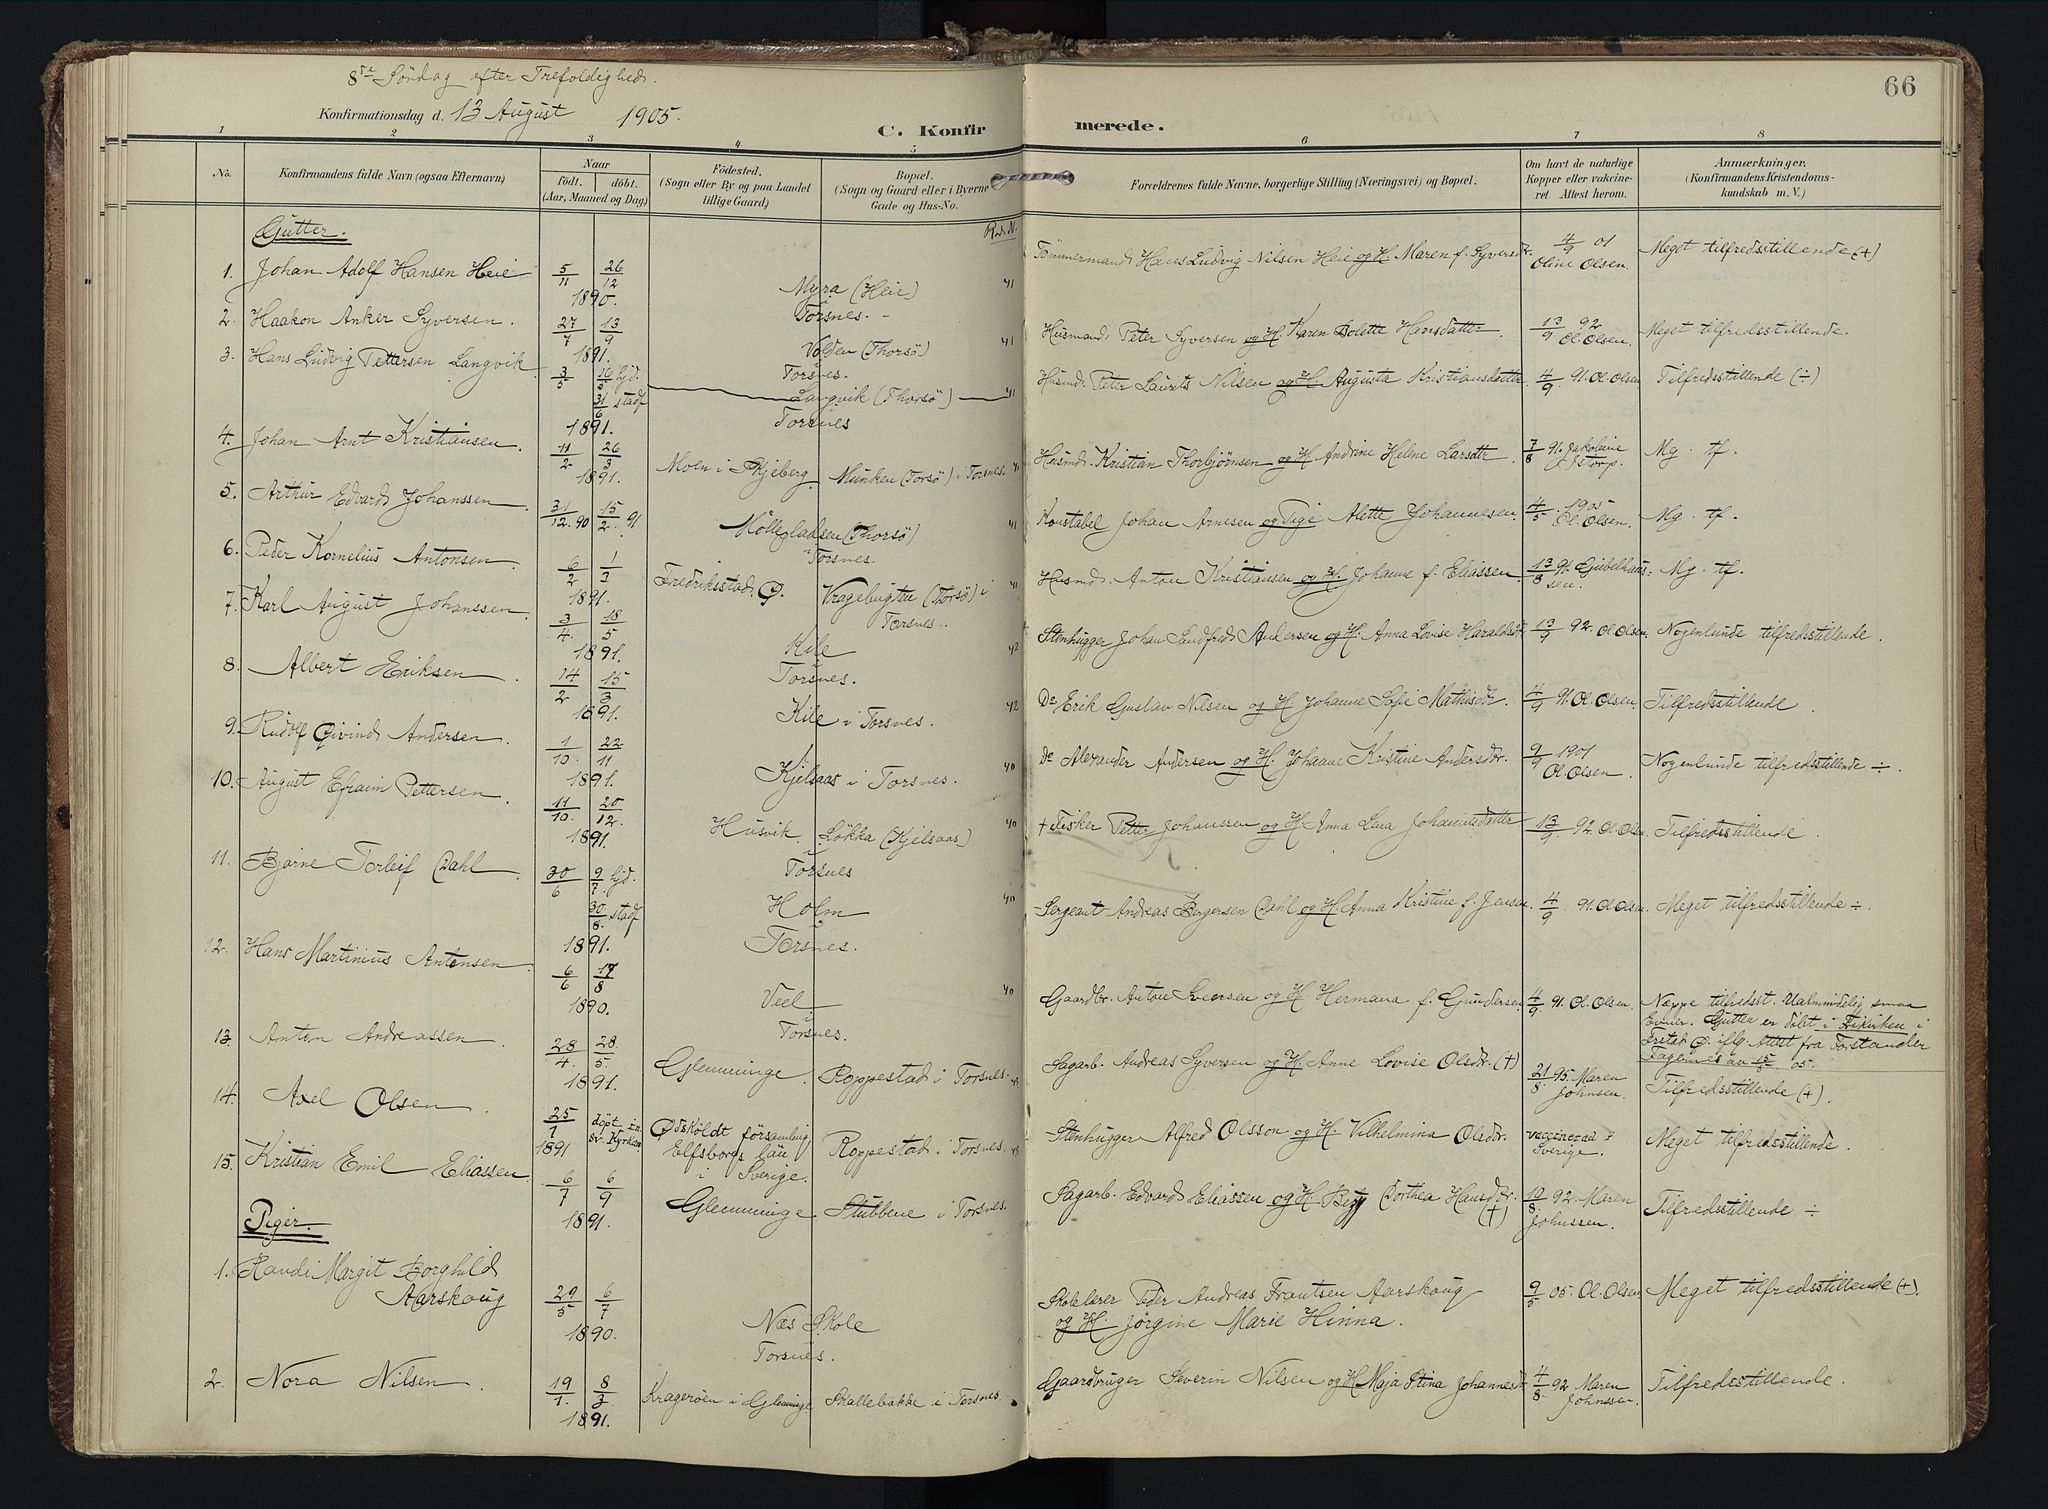 8de Søndag efter Trefoldighed.
66
Konfirmationsdag d. 13 August 1905.
C. Konfirmerede.
1 2 3 4 5 6 7 8
No.
Konfirmandens fulde Navn (ogsaa Efternavn)
Naar
födt. döbt.
(Aar, Maaned og Dag)
Födested.
(Sogn eller By og paa Landet
tillige Gaard)
Bopæl.
(Sogn og Gaard eller i Byerne
Gade og Hus-No.
Forældrenes fulde Navne, borgerlige Stilling (Næringsvei) og Bopæl.
Om havt de naturlige
Kopper eller vaccine-
ret. Attest herom.
Anmærkninger.
(Konfirmandens Kristendoms-
kundskab m. V.)
Gutter.
1. Johan Adolf Hansen Heie 5/11 26/12 1890. Myra (Heie) Torsnes. 41 Tömmermand Hans Ludvig Nilsen Heie og H. Maren f. Syversdr. 4/9 01 Oline Olsen. Meget tilfredsstillende (+)
2. Haakon Anker Syversen. 27/7 13/9 1891. Volden (Thorsö) Torsnes. 41 Husmand Peter Syversen og H. Karen Bolette Hansdatter 13/9 92 Ol. Olsen. Meget tilfredsstillende.
3. Hans Ludvig Pettersen Langvik 3/5 10/5 hjd. 31/6 stadf 1891. Langvik (Thorsö) Torsnes 41 Husmd. Peter Laurits Nilsen og H. Augusta Kristiansdatter 4/9 91. Ol. Olsen Tilfredsstillende (÷)
4. Johan Arnt Kristiansen. 11/2 26/3 1891. Moen i Skjeberg. Munken (Torsö) i Torsnes. 41 Husmd. Kristian Thorbjörnsen og H. Andrine Helene Larsdtr 7/8 91. Mg. tf.
5. Arthur Edvard Johanssen. 31/12 90 15/2 91 Möllegladsen (Thorsö) Torsnes. 41 Konstabel Johan Arnesen og Pige Alette Johannesen. 4/5 1905 Ol. Olsen. Mg. tf.
6. Peder Kornelius Antonsen. 6/2 1/3 1891. Fredriksstad. Ø. Vragebugten (Torsö) i Torsnes. 41 Husmd. Anton Kristiansen og H. Johanne f. Eliassen 13/8 91. Mg. tf.
7. Karl August Johanssen. 3/4 18/5 1891. Kile Torsnes. 42 Stenhugger Johan Sandfred Andersen og H. Anna Lovise Haraldsdtr 13/9 92. Ol. Olsen. Nogenlunde tilfredsstillende.
8. Albert Eriksen. 14/2 15/3 1891. Kile i Torsnes. 42 Do Erik Gustav Nilsen og H. Johanne Sofie Mathisdr. 4/9 91. Ol. Olsen. Tilfredsstillende.
9. Rudolf Øivind Andersen. 1/10 22/11 1891. Kjelsaas i Torsnes. 40 Do Alexander Andersen og H. Johanne Kristine Andersdr. 9/9 1901 Ol. Olsen. Nogenlunde tilfredsstillende ÷
10. August Efraim Pettersen. 11/10 20/12 1891. Husvik Løkka (Kjelsaas) Torsnes 40 + Fisker Petter Johanssen og H. Anna Lina Johannesdatter 13/9 92. Ol. Olsen Tilfredsstillende.
11. Bjarne Torleif Dahl. 30/6 9/7 hjd. 30/8 stadf 1891. Holm Torsnes. 40 Sergeant Andreas Bergersen Dahl og H. Anna Kristine f. Jensen. 4/9 91. Ol. Olsen. Meget tilfredsstillende ÷
12. Hans Martinius Antonsen 6/6 17/8 1890. Veel Torsnes. 40 Gaardbr. Anton Iversen og H. Hermana f. Gundersen 4/9 91. Ol. Olsen. Næppe tilfredsst. Ualmindelig smaa
Evner. Gutten er døbt i Frikirken i
Frstad Ø. iflg. Attest fra Forstander
Fagernes av 05.
13. Anton Andreassen. 28/4 28/5 1891. Glemminge. Roppestad i Torsnes. 43 Sagarb. Andreas Syversen og H. Anne Lovise Olsdr. (+) 21/8 95. Maren Johnsen. Tilfredsstillende (+).
14. Axel Olsen. 25/7 1891 döpt i sv. Kyrkan. Ødsköldt församling, Elfsborgs län i Sverige. Roppestad i Torsnes. 43 Stenhugger Alfred Olsson og H. Vilhelmina Olsdr. vaccinerad i Sverige. Meget tilfredsstillende.
15. Kristian Emil Eliassen. 6/7 6/9 1891. Glemminge Stubbene i Torsnes. Sagarb. Edvard Eliassen og H. Dorthea Hansdr. (+) 10/8 92. Maren Johnssen. Tilfredsstillende ÷
Piger.
1. Randi Margit Borghild Aarskoug 29/5 6/7 1890. Næs Skole Torsnes. Skolelærer Peder Andreas Frantsen Aarskoug og H. Jörgine Marie Hinna. 9/5 05. Ol. Olsen Meget tilfredsstillende (+).
2. Nora Nilsen. 19/1 8/3 1891. Kragerøen i Glemminge Skallebakke i Torsnes. Gaardbruger Severin Nilsen og H. Maja Stina Johannesdr. 4/8 92 Maren Johnssen. Tilfredsstillende.